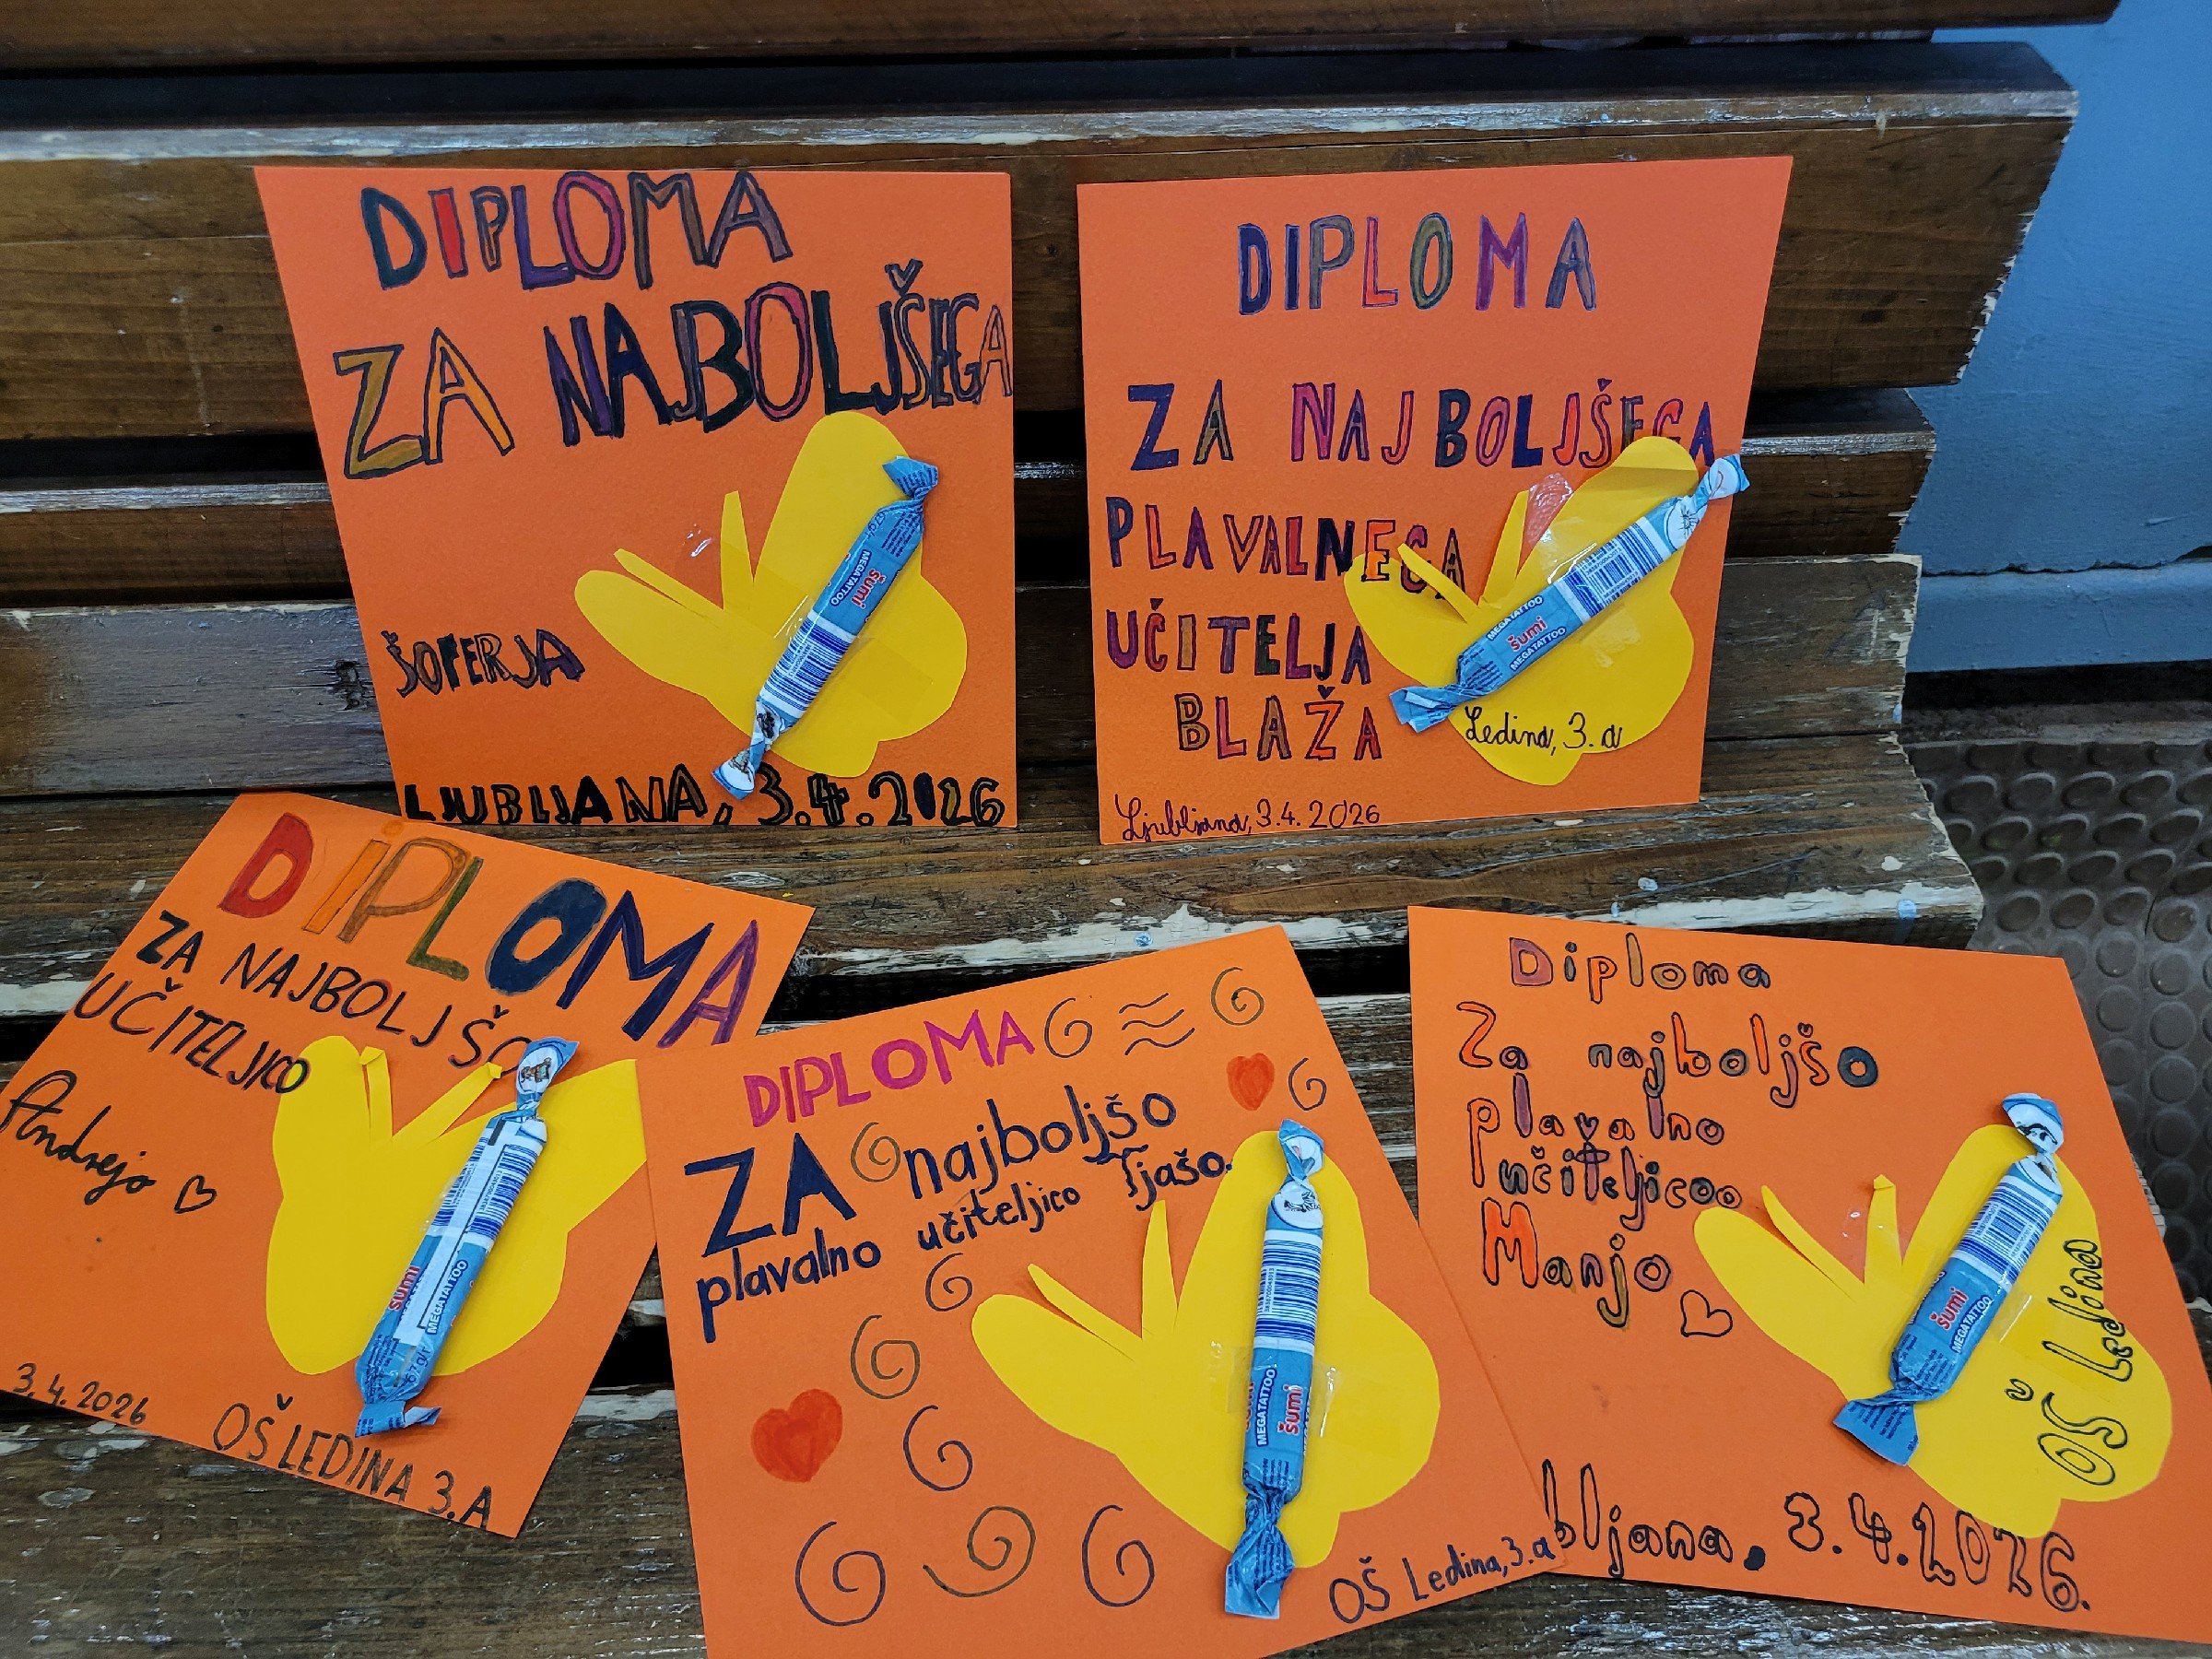 DIPLOMA
ZA NAJBOLJŠEGA
ŠOFERJA
LJUBLJANA, 3.4.2026
šumi
MEGATATTOO
DIPLOMA
ZA NAJBOLJŠEGA
PLAVALNEGA
UČITELJA
BLAŽA
Ledina, 3. a
Ljubljana, 3.4.2026
MEGATATTOO
šumi
MEGATATTOO
DIPLOMA
ZA NAJBOLJŠO
UČITELJICO
Andrejo
3.4.2026
OŠ LEDINA 3.A
šumi
MEGATATTOO
67g/
DIPLOMA
ZA najboljšo
plavalno učiteljico Tjašo.
OŠ Ledina, 3.a
MEGATATTOO
šumi
Diploma
Za najboljšo
plavalno
učiteljico
Manjo
OŠ Ledina
bljana, 3.4.2026.
šumi
MEGATATTOO